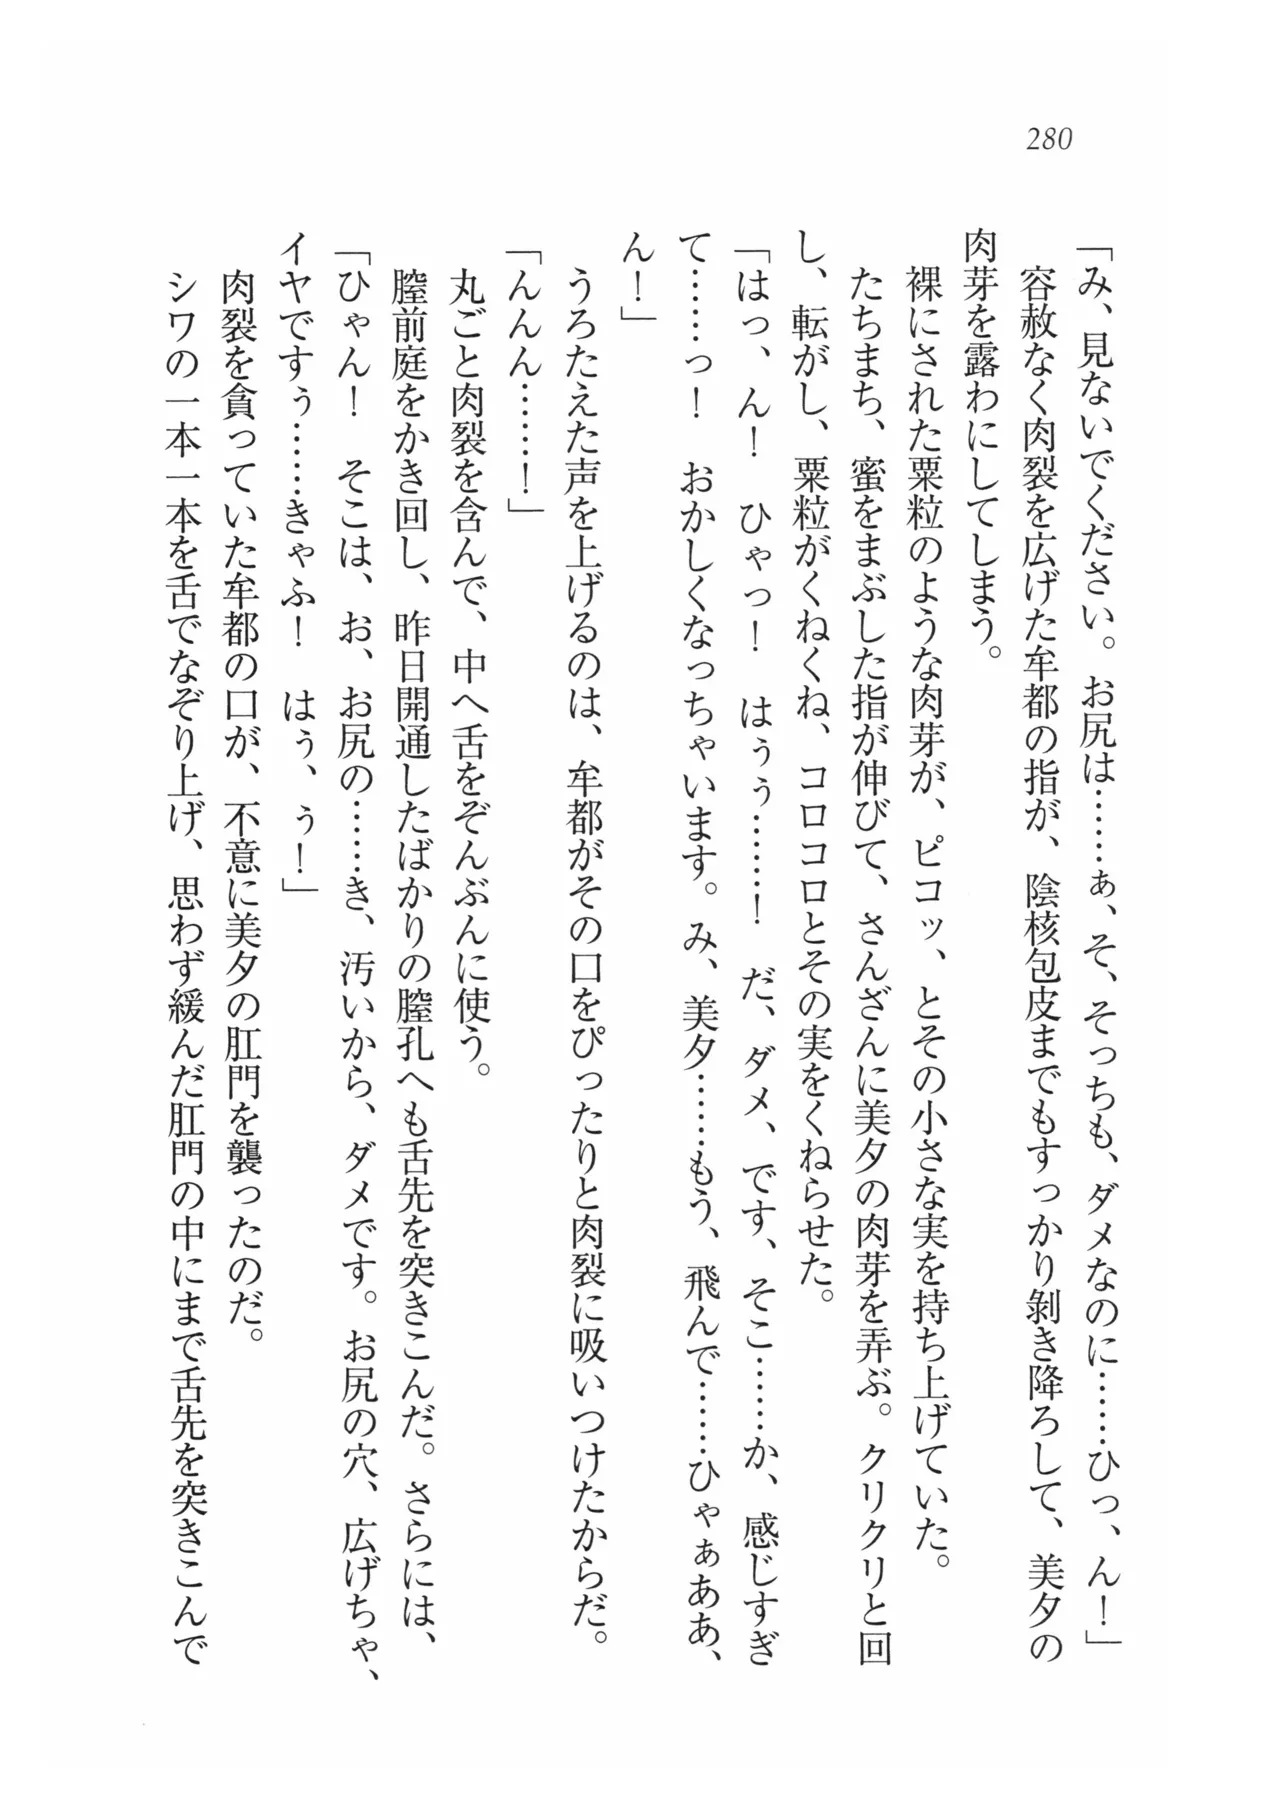 280
「み、見ないでください。お尻は……ぁ、そ、そっちも、ダメなのに……ひっ、ん！」
容赦なく肉裂を広げた牟都の指が、陰核包皮までもすっかり剝き降ろして、美夕の
肉芽を露わにしてしまう。
裸にされた粟粒のような肉芽が、ピコッ、とその小さな実を持ち上げていた。
たちまち、蜜をまぶした指が伸びて、さんざんに美夕の肉芽を弄ぶ。クリクリと回
し、転がし、粟粒がくねくね、コロコロとその実をくねらせた。
「はっ、ん！　ひゃっ！　はぅぅ……！　だ、ダメ、です、そこ……か、感じすぎ
て……っ！　おかしくなっちゃいます。み、美夕……もう、飛んで……ひゃぁああ、
ん！」
うろたえた声を上げるのは、牟都がその口をぴったりと肉裂に吸いつけたからだ。
「んんん……！」
丸ごと肉裂を含んで、中へ舌をぞんぶんに使う。
膣前庭をかき回し、昨日開通したばかりの膣孔へも舌先を突きこんだ。さらには、
「ひゃん！　そこは、お、お尻の……き、汚いから、ダメです。お尻の穴、広げちゃ、
イヤですぅ……きゃふ！　はぅ、ぅ！」
肉裂を貪っていた牟都の口が、不意に美夕の肛門を襲ったのだ。
シワの一本一本を舌でなぞり上げ、思わず緩んだ肛門の中にまで舌先を突きこんで